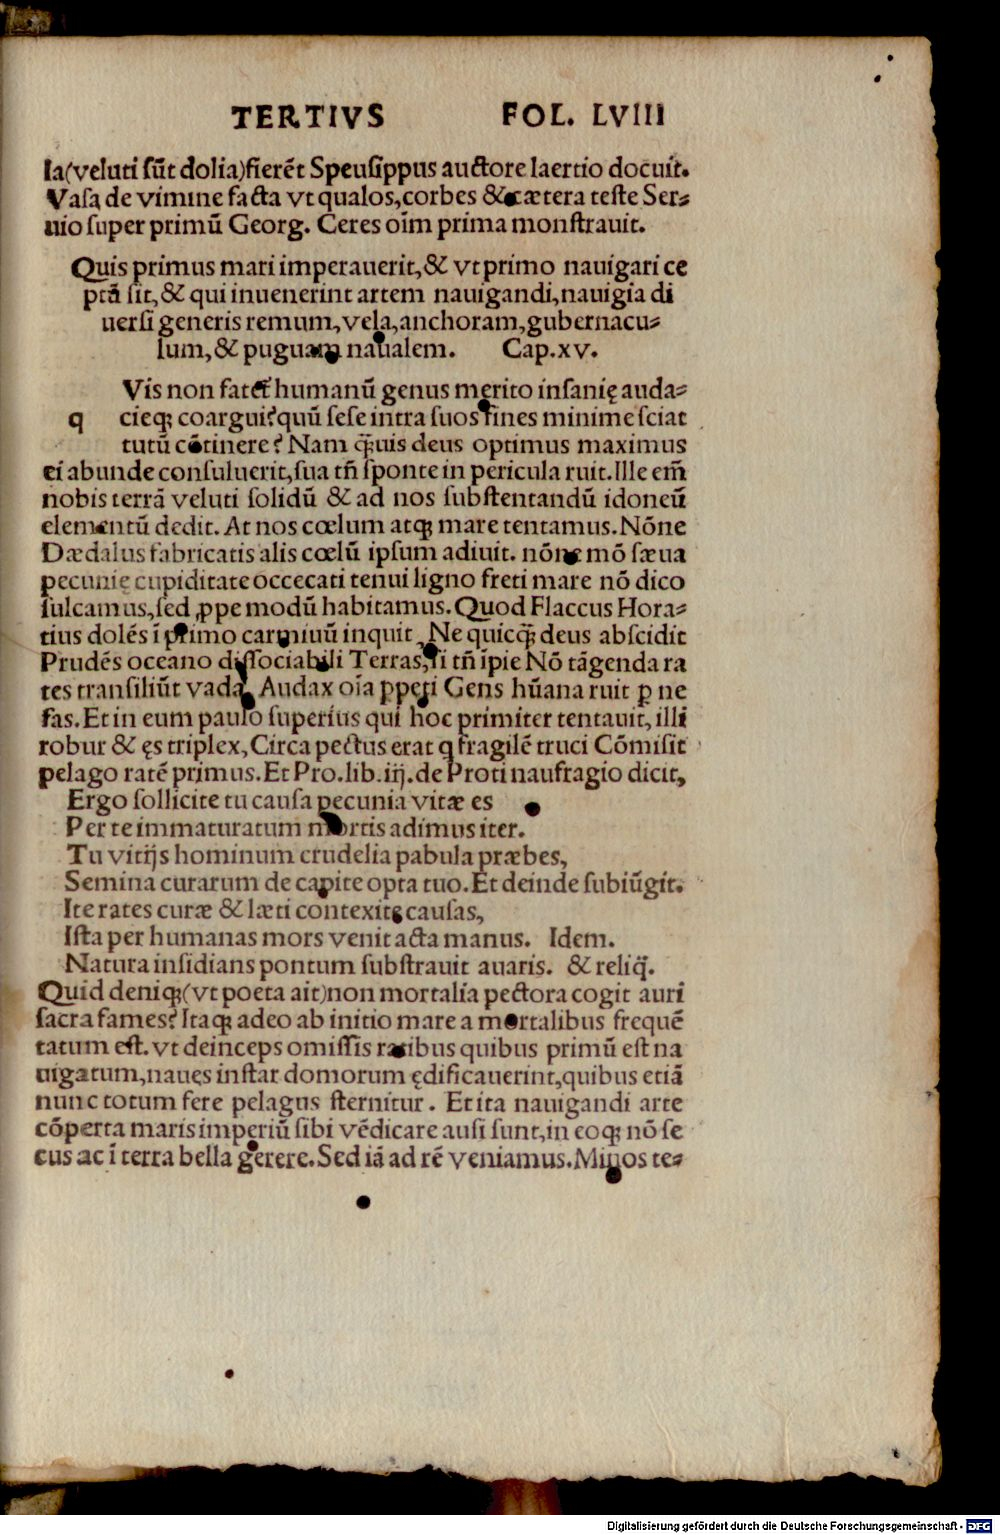 TERTIVS FOL. LVIII
la(veluti sūt dolia)fierēt Speusippus auctore laertio docuit.
Vasa de vimine facta vt qualos,corbes & cætera teste Ser-
uio super primū Georg. Ceres oīm prima monstrauit.
Quis primus mari imperauerit,& vt primo nauigari ce
ptā sit,& qui inuenerint artem nauigandi,nauigia di
uersi generis remum,vela,anchoram,gubernacu-
lum,& pugnam naualem. Cap.xv.
Vis non fatet humanū genus merito insanię auda-
q cieq; coargui?quū sese intra suos fines minime sciat
tutū cōtinere? Nam q̄uis deus optimus maximus
ei abunde consuluerit,sua tn̄ sponte in pericula ruit.Ille em̄
nobis terrā veluti solidū & ad nos substentandū idoneū
elementū dedit. At nos cœlum atq; mare tentamus.Nōne
Dædalus fabricatis alis cœlū ipsum adiuit. nōne mō sæua
pecunię cupiditate occecati tenui ligno freti mare nō dico
sulcamus,sed ꝓpe modū habitamus.Quod Flaccus Hora-
tius dolēs ī primo carminū inquit, Ne quicq̄ deus abscidit
Prudēs oceano dissociabili Terras,si tn̄ īpie Nō tāgenda ra
tes transiliūt vada, Audax oīa ꝑpeti Gens hūana ruit ꝑ ne
fas.Et in eum paulo superius qui hoc primiter tentauit, illi
robur & ęs triplex,Circa pectus erat q fragilē truci Cōmisit
pelago ratē primus.Et Pro.lib.iij.de Proti naufragio dicit,
Ergo sollicite tu causa pecunia vitæ es
Per te immaturatum mortis adimus iter.
Tu vitijs hominum crudelia pabula præbes,
Semina curarum de capite opta tuo.Et deinde subiūgit.
Ite rates curæ & læti contexite causas,
Ista per humanas mors venit acta manus. Idem.
Natura insidians pontum substrauit auaris. & reliq̄.
Quid deniq;(vt poeta ait)non mortalia pectora cogit auri
sacra fames? Itaq; adeo ab initio mare a mortalibus frequē
tatum est. vt deinceps omissis ratibus quibus primū est na
uigatum,nauęs instar domorum ędificauerint,quibus etiā
nunc totum fere pelagus sternitur. Et ita nauigandi arte
cōperta maris imperiū sibi vēdicare ausi sunt,in eoq; nō se
cus ac ī terra bella gerere.Sed iā ad rē veniamus.Minos te-
Digitalisierung gefördert durch die Deutsche Forschungsgemeinschaft - DFG